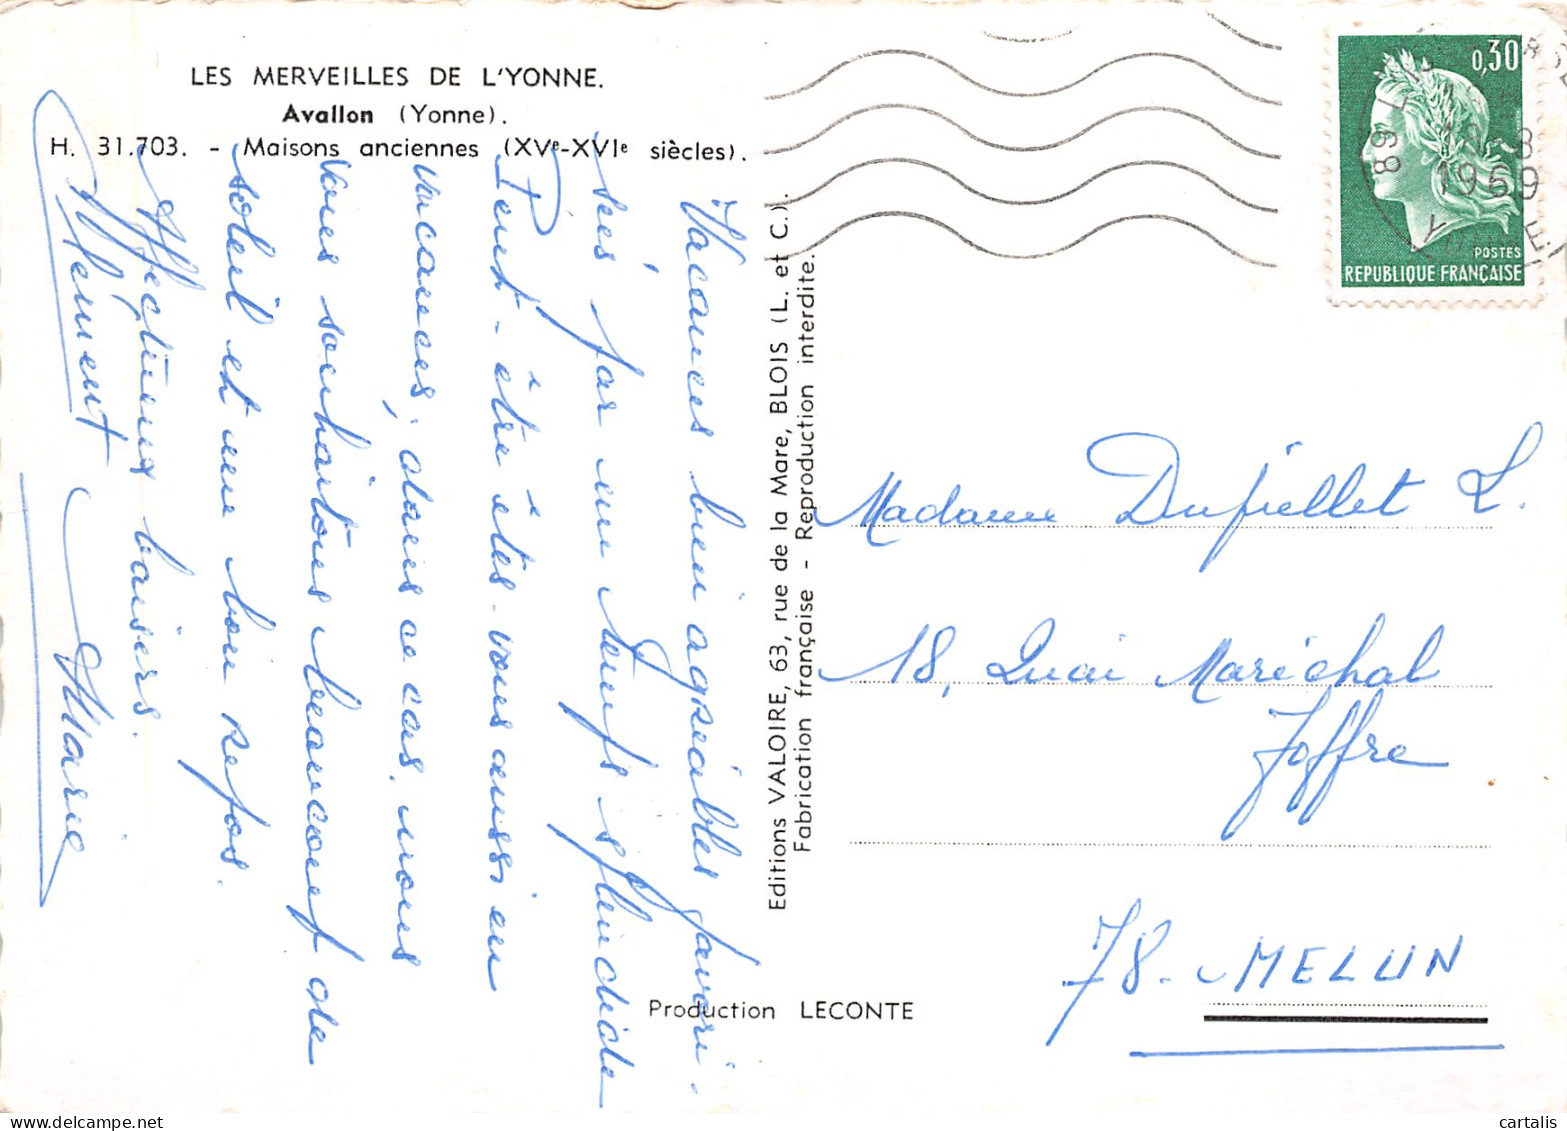 LES MERVEILLES DE L'YONNE.
Avallon (Yonne).
H. 31.703. - Maisons anciennes (XVe-XVIe siècles).
Vacances bien agréables favori-
sées par un temps splendide
Peut-être êtes-vous aussi en
vacances, dans ce cas, nous
vous souhaitons beaucoup de
soleil et un bon repos.
Affectueux baisers.
Clément Marie
Editions VALOIRE, 63, rue de la Mare, BLOIS (L. et C.).
Fabrication française - Reproduction interdite.
Production LECONTE
0,30
POSTES
REPUBLIQUE FRANÇAISE
89
1969
Madame Dufiellet L.
18, Quai Maréchal
Joffre
78 - MELUN
cartalis